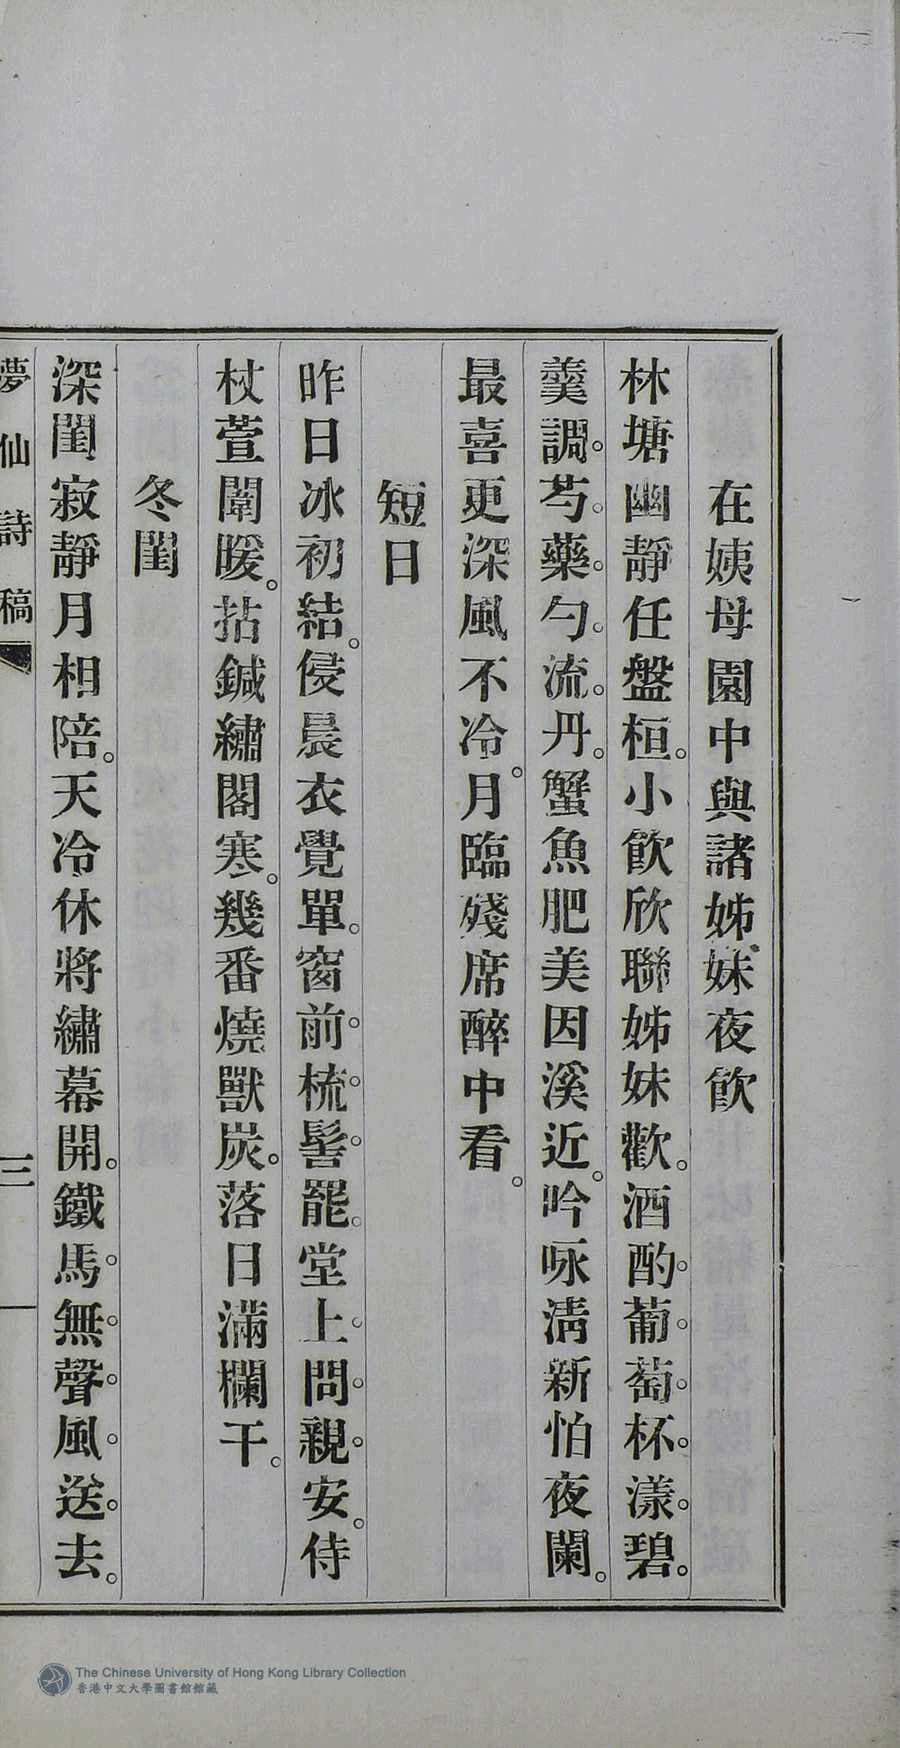 在姨母園中與諸姊妹夜飮
林塘幽靜任盤桓。小飮欣聯姊妹歡。酒酌。葡。萄。杯。漾。碧。
羹調。芍。藥。勺。流。丹。蟹魚肥美因溪近。吟咏淸新怕夜闌。
最喜更深風不冷。月臨殘席醉中看。
短日
昨日冰初結。侵晨衣覺單。窗前。梳。髻。罷。堂上。問。親。安。侍
杖萱闈暖。拈鍼繡閣寒。幾番燒獸炭。落日滿欄干。
冬閨
深閨寂靜月相陪。天冷休將繡幕開。鐵馬。無。聲。風。送。去。
夢仙詩稿
三
The Chinese University of Hong Kong Library Collection
香港中文大學圖書館館藏